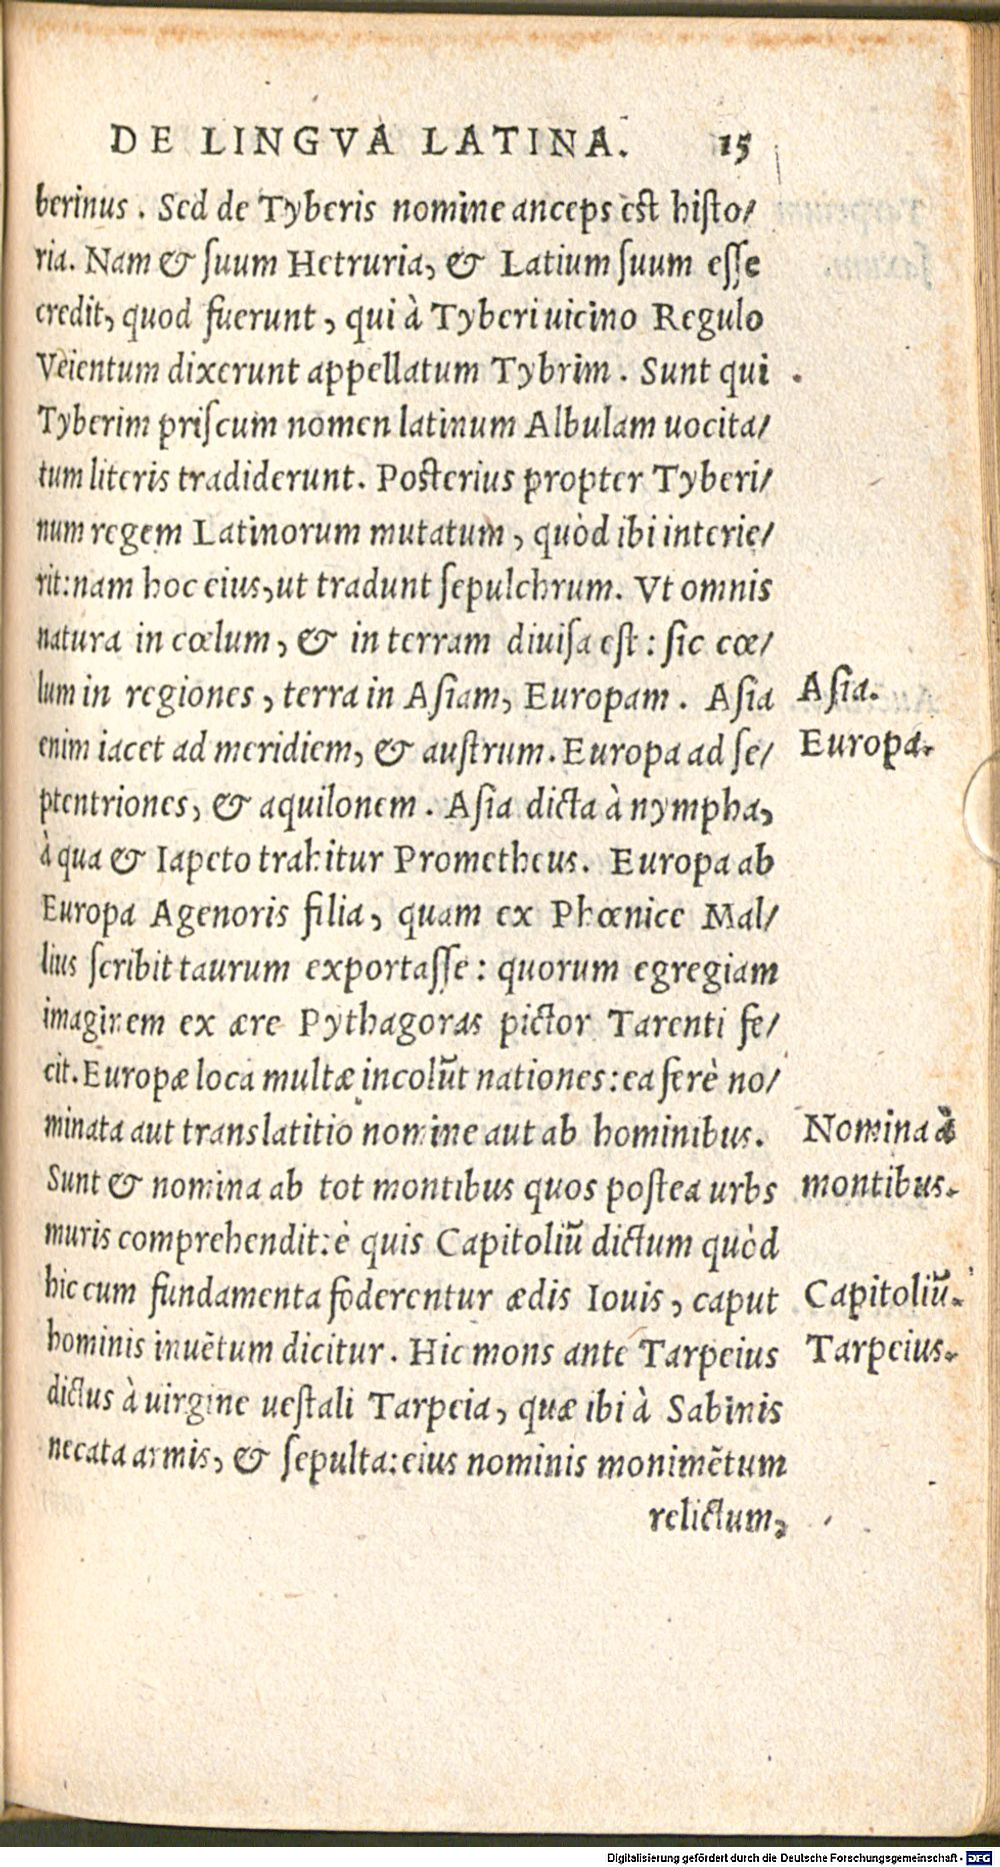 DE LINGVA LATINA. 15
berinus. Sed de Tyberis nomine anceps est histo/
ria. Nam & suum Hetruria, & Latium suum esse
credit, quod fuerunt, qui à Tyberi uicino Regulo
Veientum dixerunt appellatum Tybrim. Sunt qui
Tyberim priscum nomen latinum Albulam uocita/
tum literis tradiderunt. Posterius propter Tyberi/
num regem Latinorum mutatum, quòd ibi interie/
rit: nam hoc eius, ut tradunt sepulchrum. Vt omnis
natura in cœlum, & in terram diuisa est: sic cœ/
lum in regiones, terra in Asiam, Europam. Asia
Asia.
enim iacet ad meridiem, & austrum. Europa ad se/
Europa.
ptentriones, & aquilonem. Asia dicta à nympha,
à qua & Iapeto trahitur Prometheus. Europa ab
Europa Agenoris filia, quam ex Phœnice Mal/
lius scribit taurum exportasse: quorum egregiam
imaginem ex ære Pythagoras pictor Tarenti fe/
cit. Europæ loca multæ incolũt nationes: ea ferè no/
minata aut translatitio nomine aut ab hominibus.
Nomina à
Sunt & nomina ab tot montibus quos postea urbs
montibus.
muris comprehendit: è quis Capitoliũ dictum quòd
hic cum fundamenta foderentur ædis Iouis, caput
Capitoliũ.
hominis inuẽtum dicitur. Hic mons ante Tarpeius
Tarpeius.
dictus à uirgine uestali Tarpeia, quæ ibi à Sabinis
necata armis, & sepulta: eius nominis monimẽtum
relictum,
Digitalisierung gefördert durch die Deutsche Forschungsgemeinschaft - DFG